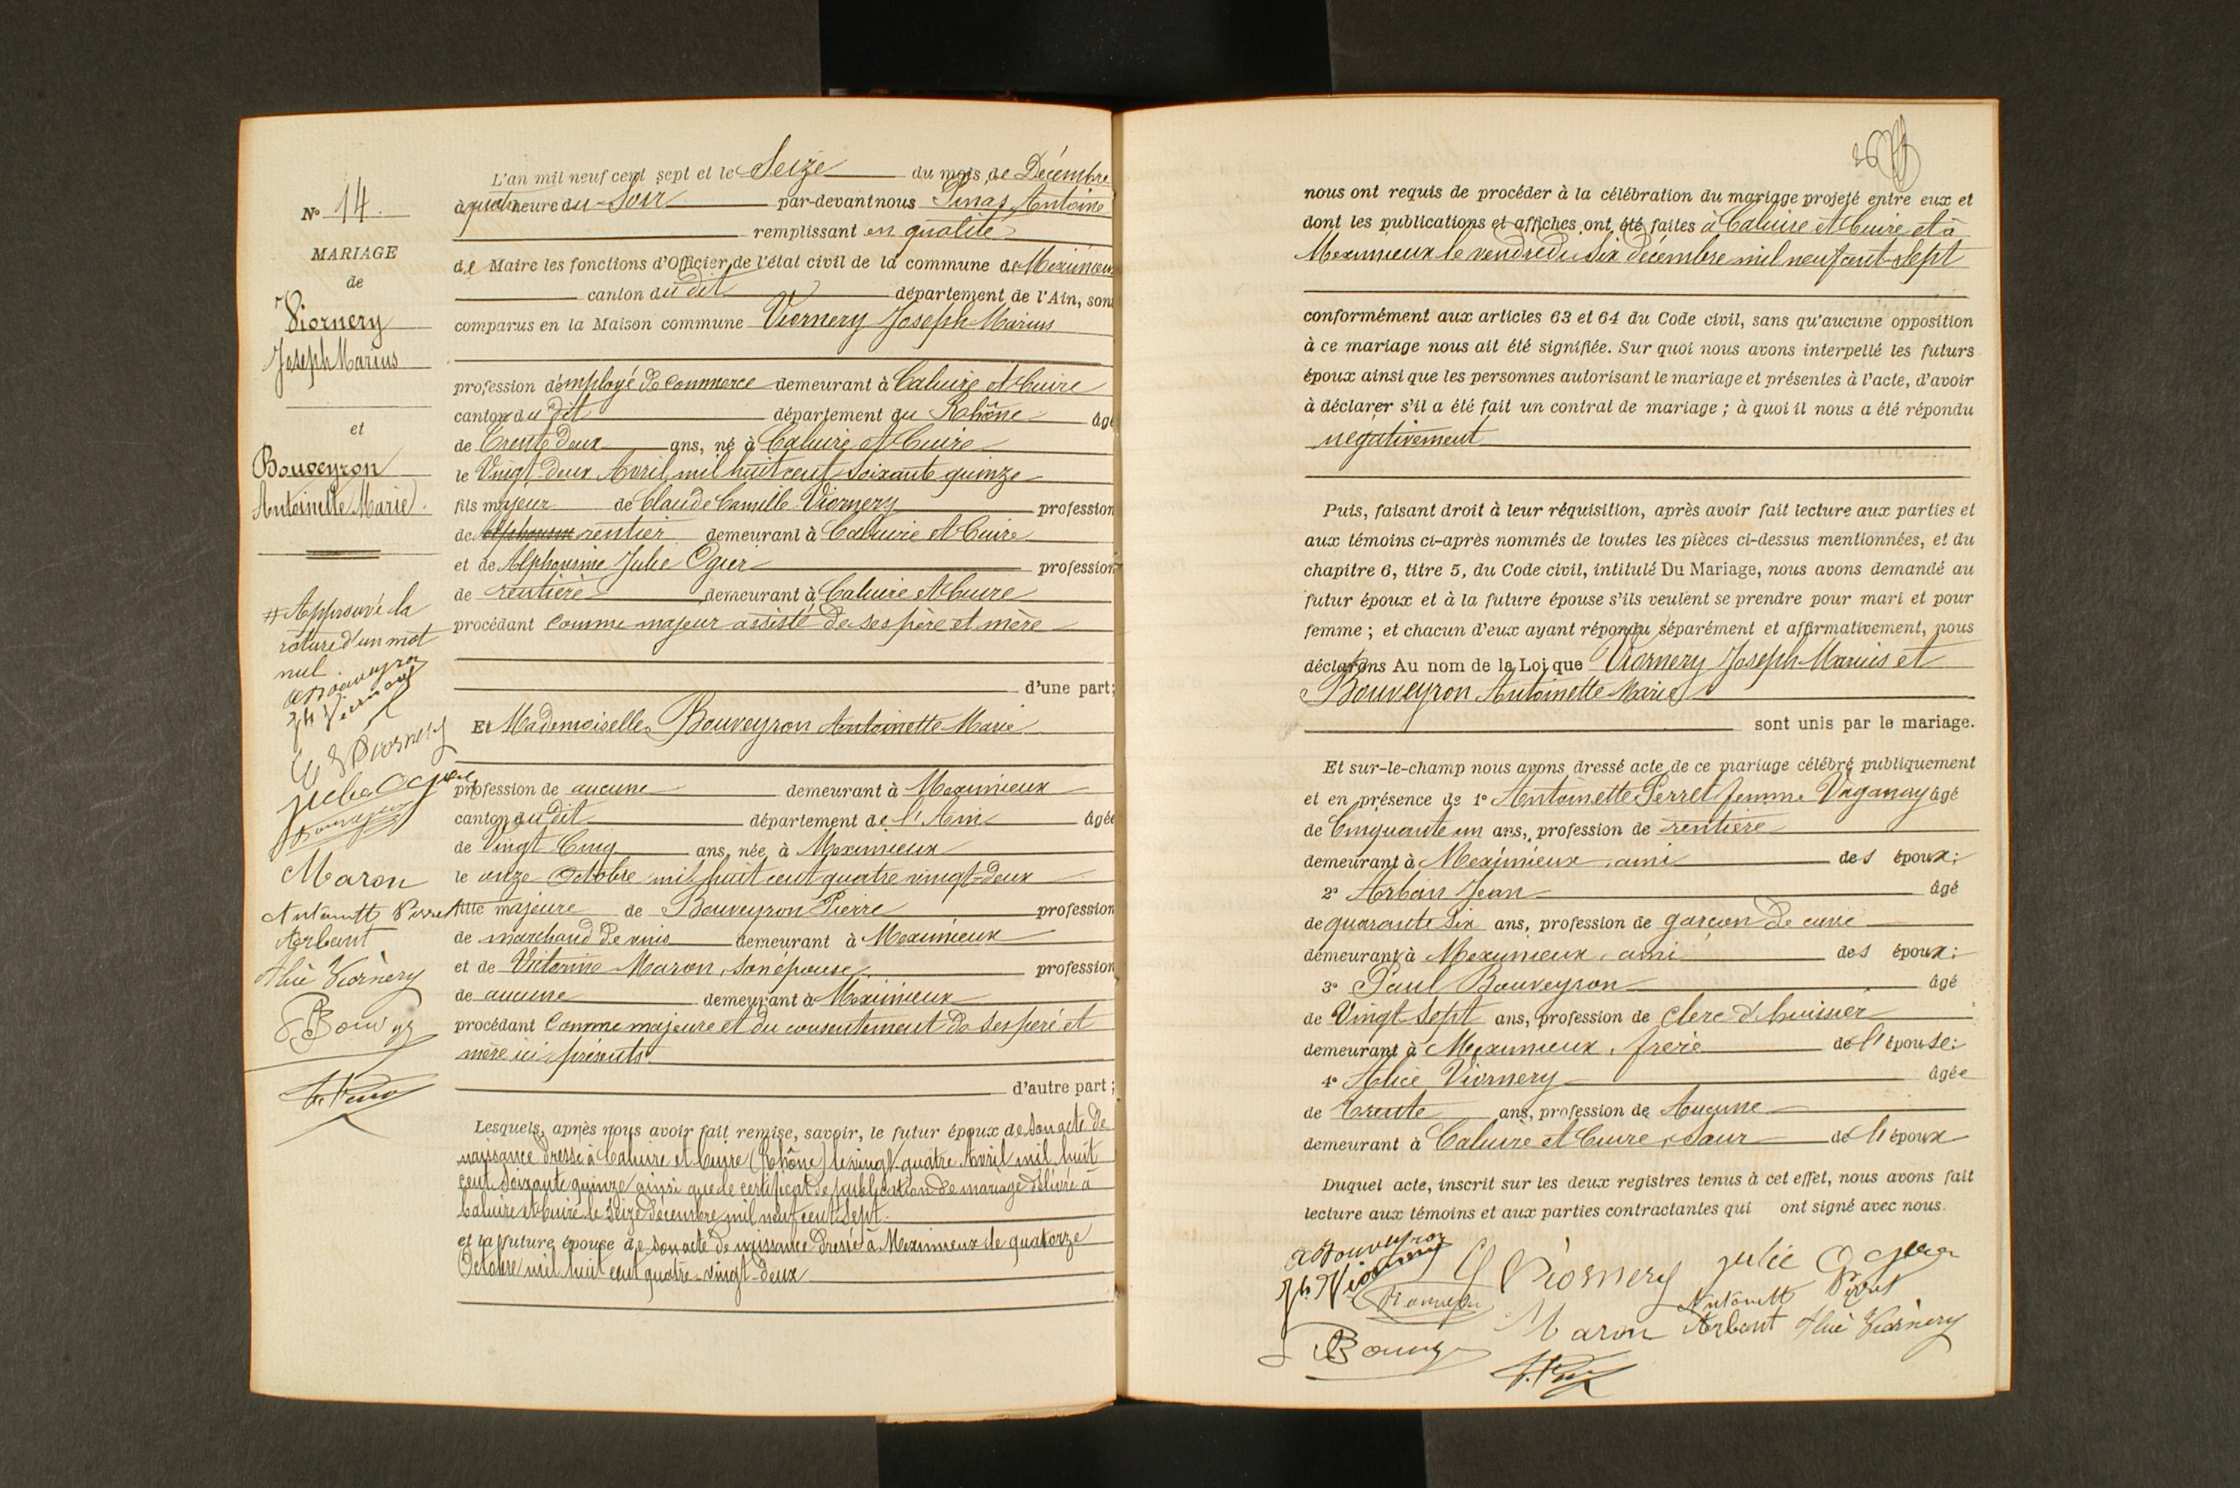 N° 14.
MARIAGE
de
Viornery
Joseph Marius
et
Bouveyron
Antoinette Marie.
# Approuvé la
rature d'un mot
nul.
ABouveyron
Jh Viornery
C Viornery
julie Ogier
Bouveyron
Maron
Antoinette Perret
Arbant
Alice Viornery
PBouv
L'an mil neuf cent sept et le Seize du mois de Décembre
à quatre heure du Soir par-devant nous Pinas Antoine
remplissant en qualité
de Maire les fonctions d'Officier de l'état civil de la commune de Meximieux
canton du dit département de l'Ain, sont
comparus en la Maison commune Viornery Joseph Marius
profession d'employé de commerce demeurant à Caluire et Cuire
canton du dit département du Rhône âgé
de Trente deux ans, né à Caluire et Cuire
le Vingt-deux Avril mil huit cent soixante quinze
fils majeur de Claude Camille Viornery profession
de Alphonsine rentier demeurant à Caluire et Cuire
et de Alphonsine Julie Ogier profession
de rentière demeurant à Caluire et Cuire
procédant comme majeur assisté de ses père et mère
d'une part;
Et Mademoiselle Bouveyron Antoinette Marie
profession de aucune demeurant à Meximieux
canton du dit département de l'Ain âgée
de Vingt Cinq ans, née à Meximieux
le onze Octobre mil huit cent quatre vingt-deux
fille majeure de Bouveyron Pierre profession
de marchand de vins demeurant à Meximieux
et de Victorine Maron, son épouse profession
de aucune demeurant à Meximieux
procédant comme majeure et du consentement de ses père et
mère ici présents.
d'autre part;
Lesquels, après nous avoir fait remise, savoir, le futur époux de son acte de
naissance dressé à Caluire et Cuire (Rhône) le vingt-quatre Avril mil huit
cent soixante quinze, ainsi que le certificat de publication de mariage délivré à
Caluire et Cuire le Seize décembre mil neuf cent sept.
et la future épouse de son acte de naissance dressé à Meximieux le quatorze
Octobre mil huit cent quatre-vingt-deux
26
nous ont requis de procéder à la célébration du mariage projeté entre eux et
dont les publications et affiches ont été faites à Caluire et Cuire et à
Meximieux le vendredi six décembre mil neuf cent sept
conformément aux articles 63 et 64 du Code civil, sans qu'aucune opposition
à ce mariage nous ait été signifiée. Sur quoi nous avons interpellé les futurs
époux ainsi que les personnes autorisant le mariage et présentes à l'acte, d'avoir
à déclarer s'il a été fait un contrat de mariage; à quoi il nous a été répondu
négativement
Puis, faisant droit à leur réquisition, après avoir fait lecture aux parties et
aux témoins ci-après nommés de toutes les pièces ci-dessus mentionnées, et du
chapitre 6, titre 5, du Code civil, intitulé Du Mariage, nous avons demandé au
futur époux et à la future épouse s'ils veulent se prendre pour mari et pour
femme; et chacun d'eux ayant répondu séparément et affirmativement, nous
déclarons Au nom de la Loi que Viornery Joseph Marius et
Bouveyron Antoinette Marie
sont unis par le mariage.
Et sur-le-champ nous avons dressé acte de ce mariage célébré publiquement
et en présence de 1° Antoinette Perret femme Vaganay âgé
de Cinquante un ans, profession de rentière
demeurant à Meximieux, ami des époux;
2° Arban Jean âgé
de quarante six ans, profession de garçon de cave
demeurant à Meximieux, ami des époux;
3° Paul Bouveyron âgé
de Vingt Sept ans, profession de Clerc d'huissier
demeurant à Meximieux, frère de l'épouse;
4° Alice Viornery âgée
de Trente ans, profession de Aucune
demeurant à Caluire et Cuire, Sœur de l'époux
Duquel acte, inscrit sur les deux registres tenus à cet effet, nous avons fait
lecture aux témoins et aux parties contractantes qui ont signé avec nous.
ABouveyron
Jh Viornery
C Viornery julie Ogier
Bouveyron
Antoinette Perret
Maron Arbant Alice Viornery
PBouv